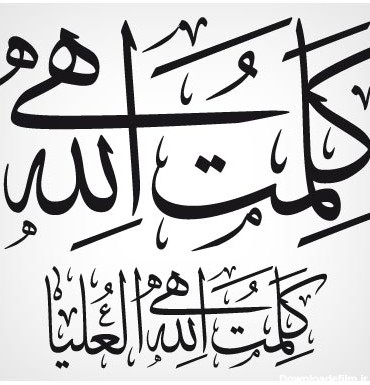 كلمت الله هي
كلمت الله هي العليا
Downloadefilm.ir